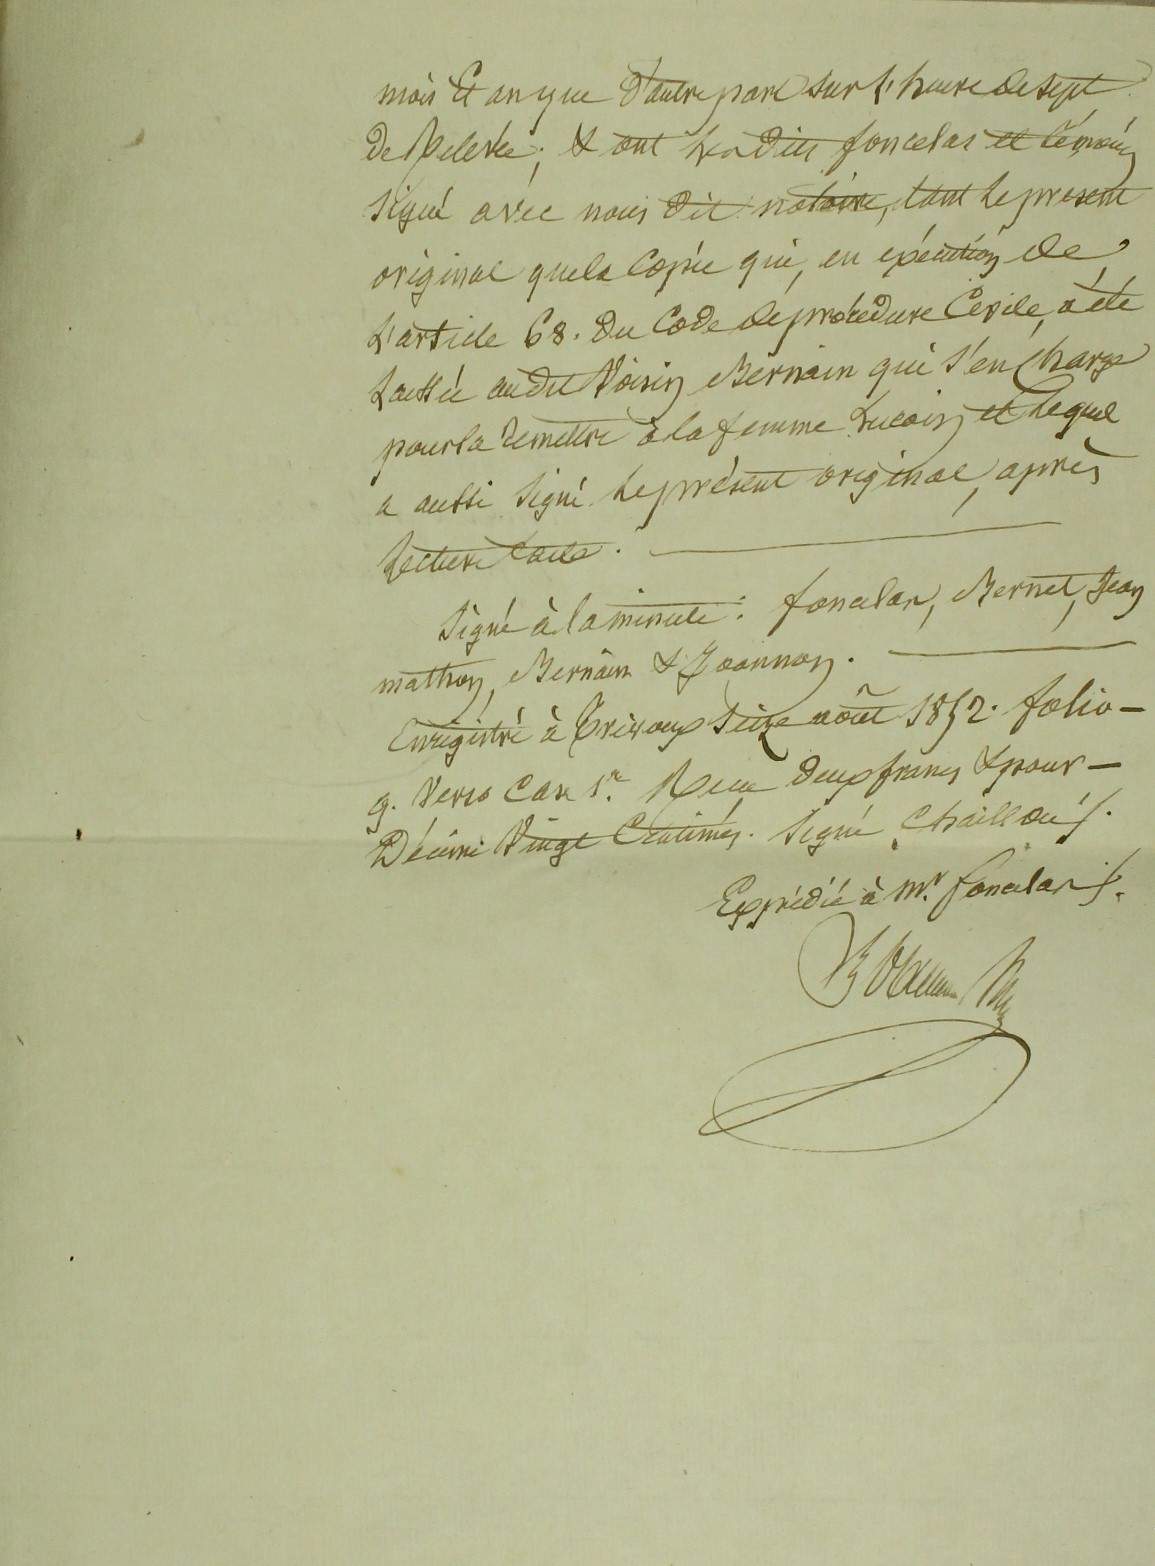 mois et an que d'autre part sur l'heure de sept
de relevée; & ont les dits foncelas et témoins
signé avec nous dit notaire, tant le présent
original que la copie qui, en exécution de
l'article 68. du Code de procédure Civile, a été
laissée au dit Voisin Bernain qui s'en charge
pour la remettre à la femme Lucoin et lequel
a aussi signé le présent original, après
lecture faite.
Signé à la minute: foncelas, Bernet, Jean
mathon, Bernain & Joannon.
Enregistré à Trévoux seize août 1852. folio
9. Verso Case 1re. Reçu deux francs & pour
Décime Vingt Centimes. Signé Chailloué.
Expédié à Mr. foncelas.